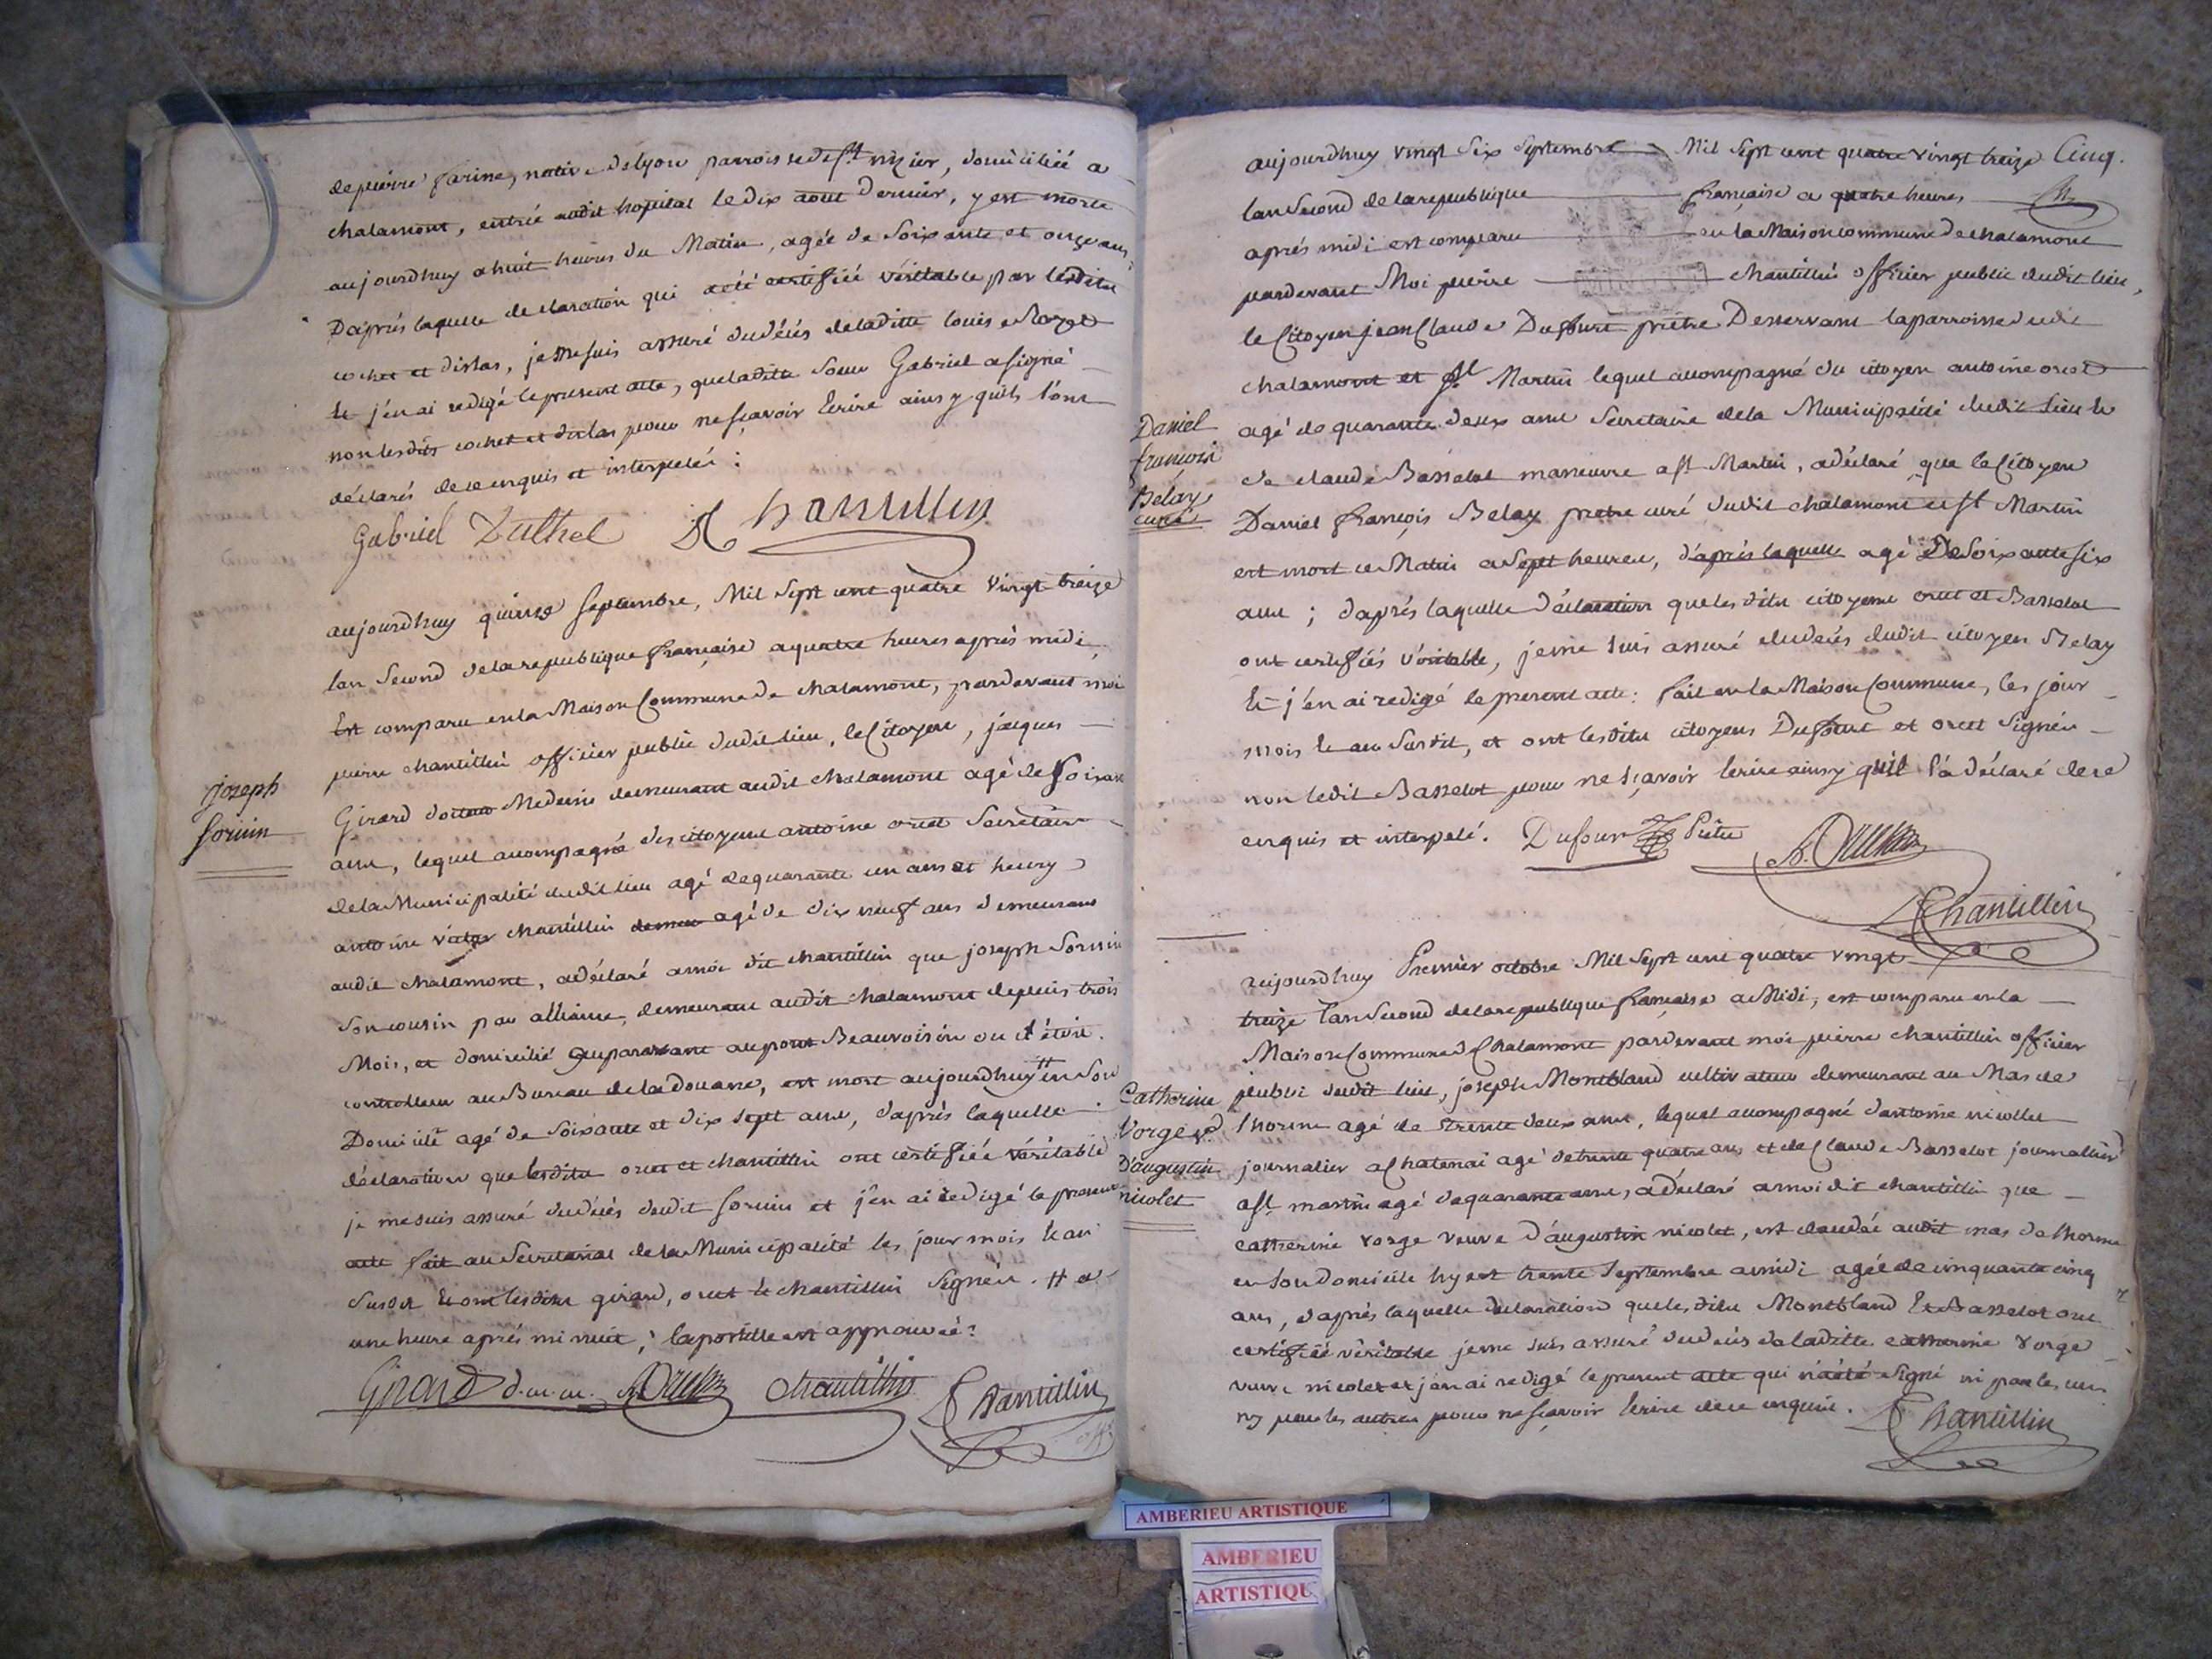 de pierre farine, native de lyon parroisse de st nizier, domiciliée a
chalamont, entrée audit hopital le dix aout dernier, y est morte
aujourdhuy a huit heures du Matin, agée de soixante et onze ans,
D'aprés laquelle déclaration qui a été certifiée véritable par lesdits
cochet et dislas, je me suis assuré du décés de laditte louise
Et j'en ai redigé le present acte, que laditte soeur Gabriel a signé
non lesdits cochet et dislas pour ne sçavoir écrire ainsy qu'ils l'ont
déclarés de ce enquis et interpelés :
Gabriel Chantillin
aujourdhuy quinze septembre, Mil sept cent quatre vingt treize
lan second de la republique française a quatre heures aprés midi,
Est comparu en la Maison Commune de chalamont, pardevant moi
pierre chantillin officier public dudit lieu, le Citoyen, jacques
joseph
sornin
Girard docteur Medecin demeurant audit chalamont agé de soixante
ans, lequel accompagné des citoyens antoine orcet secretaire
de la Municipalité dudit lieu agé de quarante un ans et henry
antoine chantillin agé de dix neuf ans demeurant
audit chalamont, a déclaré a moi dit chantillin que joseph sornin
son cousin par alliance, demeurant audit chalamont depuis trois
Mois, et domicilié auparavant au pont Beauvoisin ou il étoit
controlleur au Bureau de la douane, est mort aujourdhuy # en son
Domicile agé de soixante et dix sept ans, d'aprés laquelle
déclaration que lesdits orcet et chantillin ont certifiée véritable
je me suis assuré du décés dudit sornin et j'en ai redigé le present
acte fait au Secretariat de la Municipalité les jour mois et an
susdit et ont lesdits girard, orcet et chantillin signés. # a
une heure aprés minuit ; lapostille est approuvée :
Girard d.m.m. chantillin Chantillin
aujourdhuy vingt six septembre Mil sept cent quatre vingt treize Cinq.
lan second de la republique française a quatre heures
aprés midi est comparu en la Maison commune de chalamont
pardevant Moi pierre chantillin officier public dudit lieu,
le Citoyen jean Claude Dufour prêtre Desservant la parroisse dudit
chalamont et st Martin lequel accompagné du citoyen antoine orcet
Daniel
françois
Belay
curé
agé de quarante deux ans secretaire de la Municipalité dudit lieu et
de claude Basselot maneuvre a st Martin, a déclaré que le Citoyen
Daniel françois Belay pretre curé dudit chalamont et st Martin
est mort ce Matin a sept heures, d'aprés laquelle agé De soixante six
ans ; d'aprés laquelle déclaration que lesdits citoyens orcet et Basselot
ont certifiés véritable, je me suis assuré du décés dudit citoyen Belay
Et j'en ai redigé le present acte : fait en la Maison Commune, les jour
mois et an susdit, et ont lesdits citoyens Dufour et orcet signés
non ledit Basselot pour ne sçavoir écrire ainsy quil l'a déclaré de ce
enquis et interpelé. Dufour
Chantillin
aujourdhuy Premier octobre Mil sept cent quatre vingt
treize l'an second de la republique française a Midi, est comparu en la
Maison Commune de Chalamont pardevant moi pierre chantillin officier
Catherine
Vorge ve
d'augustin
nicolet
public dudit lieu, joseph Montbland cultivateur demeurant au Mas de
lhorme agé de trente deux ans, lequel accompagné d'antoine nicollet
journalier a Chatenai agé de trente quatre ans et de Claude Basselot journallier
a st martin agé de quarante ans, a déclaré a moi dit chantillin que
catherine vorge veuve d'augustin nicolet, est décédée audit mas de lhorme
en son domicile hyer trente septembre a midi agée de cinquante cinq
ans, d'aprés laquelle déclaration que lesdits Montbland Et Basselot ont
certifiée véritable je me suis assuré du décés de laditte catherine vorge
veuve nicolet et j'en ai redigé le present acte qui n'a été signé ni par les uns
ny par les autres pour ne sçavoir écrire de ce enquis. Chantillin
AMBERIEU ARTISTIQUE
AMBERIEU
ARTISTIQU